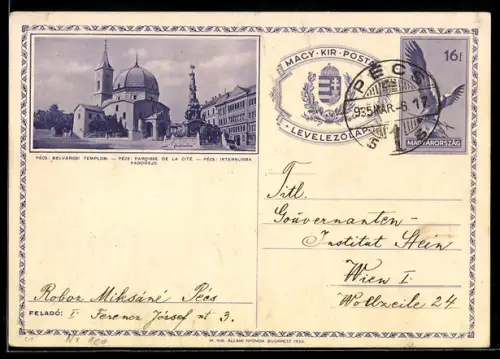 MAGY · KIR · POSTA
LEVELEZŐLAP
16 f
PÉCS
935 MÁR. -6. 17
MAGYARORSZÁG
PÉCS: BELVÁROSI TEMPLOM. — PÉCS PAROISSE DE LA CITÉ. — PÉCS: INTERNURBA
PAROĤEJO.
Titl.
Gouvernanten-
Institut Stein
Wien I.
Wollzeile 24
Roboz Miksáné Pécs
FELADÓ: I Ferencz József ut 3.
M. KIR. ÁLLAMI NYOMDA. BUDAPEST 1933.